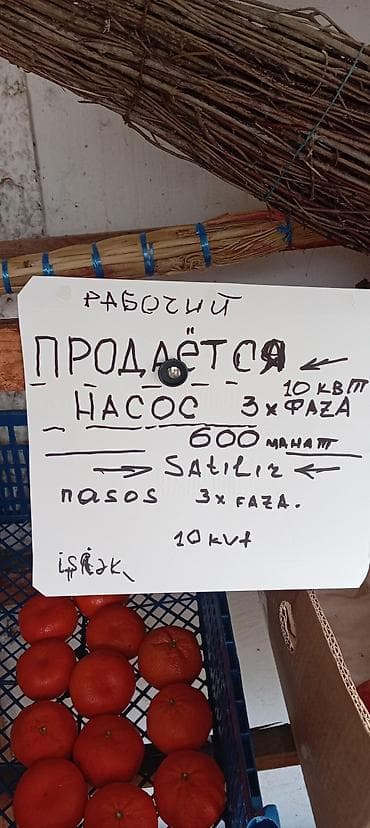 РАБОЧИЙ
ПРОДАЁТСЯ
10 КВТ
НАСОС 3х ФАZА
600 МАНАТ
SATILIR
nasos 3x FAZA.
10 kVt